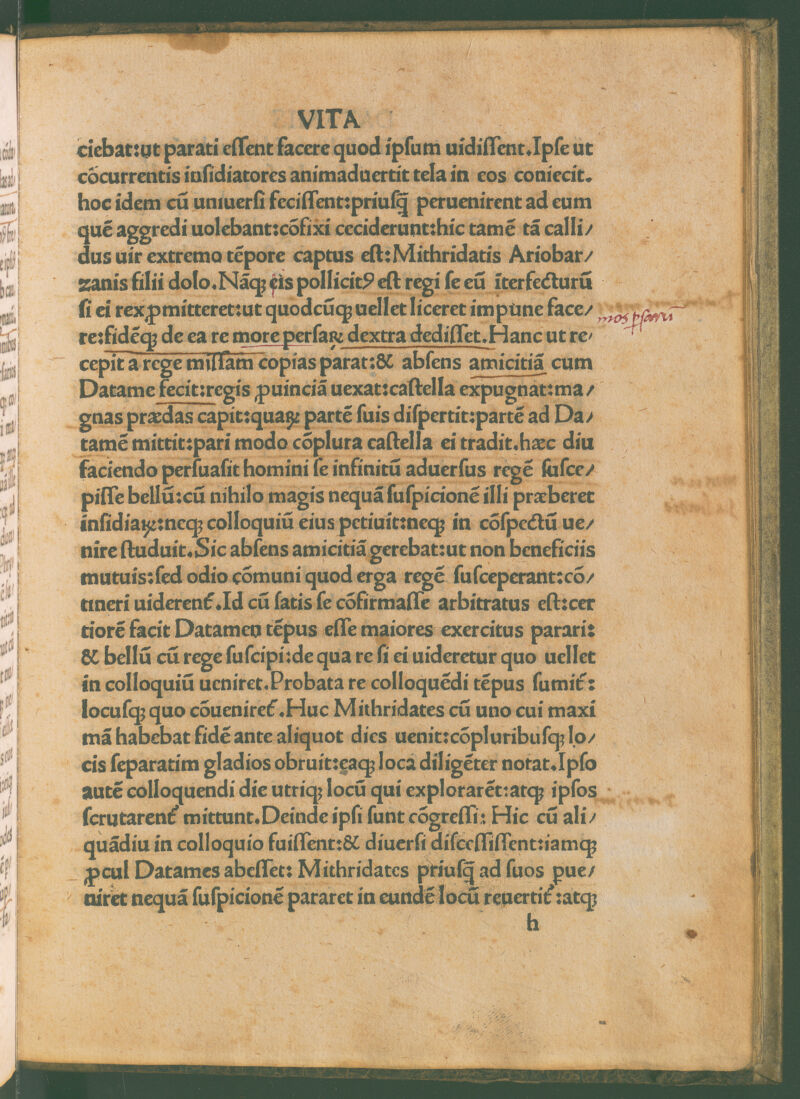 VITA
ciebat:ut parati eſſent facere quod ipſum uidiſſent.Ipſe ut
cōcurrentis inſidiatores animaduertit tela in eos coniecit.
hoc idem cū uniuerſi feciſſent:priuſq̄ peruenirent ad eum
quē aggredi uolebant:cōfixi ceciderunt:hic tamē tā calli/
dus uir extremo tēpore captus eſt:Mithridatis Ariobar/
zanis filii dolo.Nāq; eis pollicitꝰ eſt regi ſe eū īterfecturū
ſi ei rex ꝓmitteret:ut quodcūq; uellet liceret impune face/
re:fidēq; de ea re more perſaꝝ dextra dediſſet.Hanc ut re/
mos pſarū
cepit a rege miſſam copias parat:& abſens amicitiā cum
Datame fecit:regis ꝓuinciā uexat:caſtella expugnat:ma/
gnas prædas capit:quaꝝ partē ſuis diſpertit:partē ad Da/
tamē mittit:pari modo cōplura caſtella ei tradit.hæc diu
faciendo perſuaſit homini ſe infinitū aduerſus regē ſuſce/
piſſe bellū:cū nihilo magis nequā ſuſpicionē illi præberet
inſidiaꝝ:neq; colloquiū eius petiuit:neq; in cōſpectū ue/
nire ſtuduit.Sic abſens amicitiā gerebat:ut non beneficiis
mutuis:ſed odio cōmuni quod erga regē ſuſceperant:cō/
tineri uiderent᷑.Id cū ſatis ſe cōfirmaſſe arbitratus eſt:cer
tiorē facit Datamen tēpus eſſe maiores exercitus parari:
& bellū cū rege ſuſcipi:de qua re ſi ei uideretur quo uellet
in colloquiū ueniret.Probata re colloquēdi tēpus ſumit᷑:
locuſq; quo cōueniret᷑.Huc Mithridates cū uno cui maxi
mā habebat fidē ante aliquot dies uenit:cōpluribuſq; lo/
cis ſeparatim gladios obruit:eaq; loca diligēter notat.Ipſo
autē colloquendi die utriq; locū qui explorarēt:atq; ipſos
ſcrutarent᷑ mittunt.Deinde ipſi ſunt cōgreſſi: Hic cū ali/
quādiu in colloquio fuiſſent:& diuerſi diſceſſiſſent:iamq;
ꝓcul Datames abeſſet: Mithridates priuſq̄ ad ſuos pue/
niret nequā ſuſpicionē pararet in eundē locū reuertit᷑:atq;
h